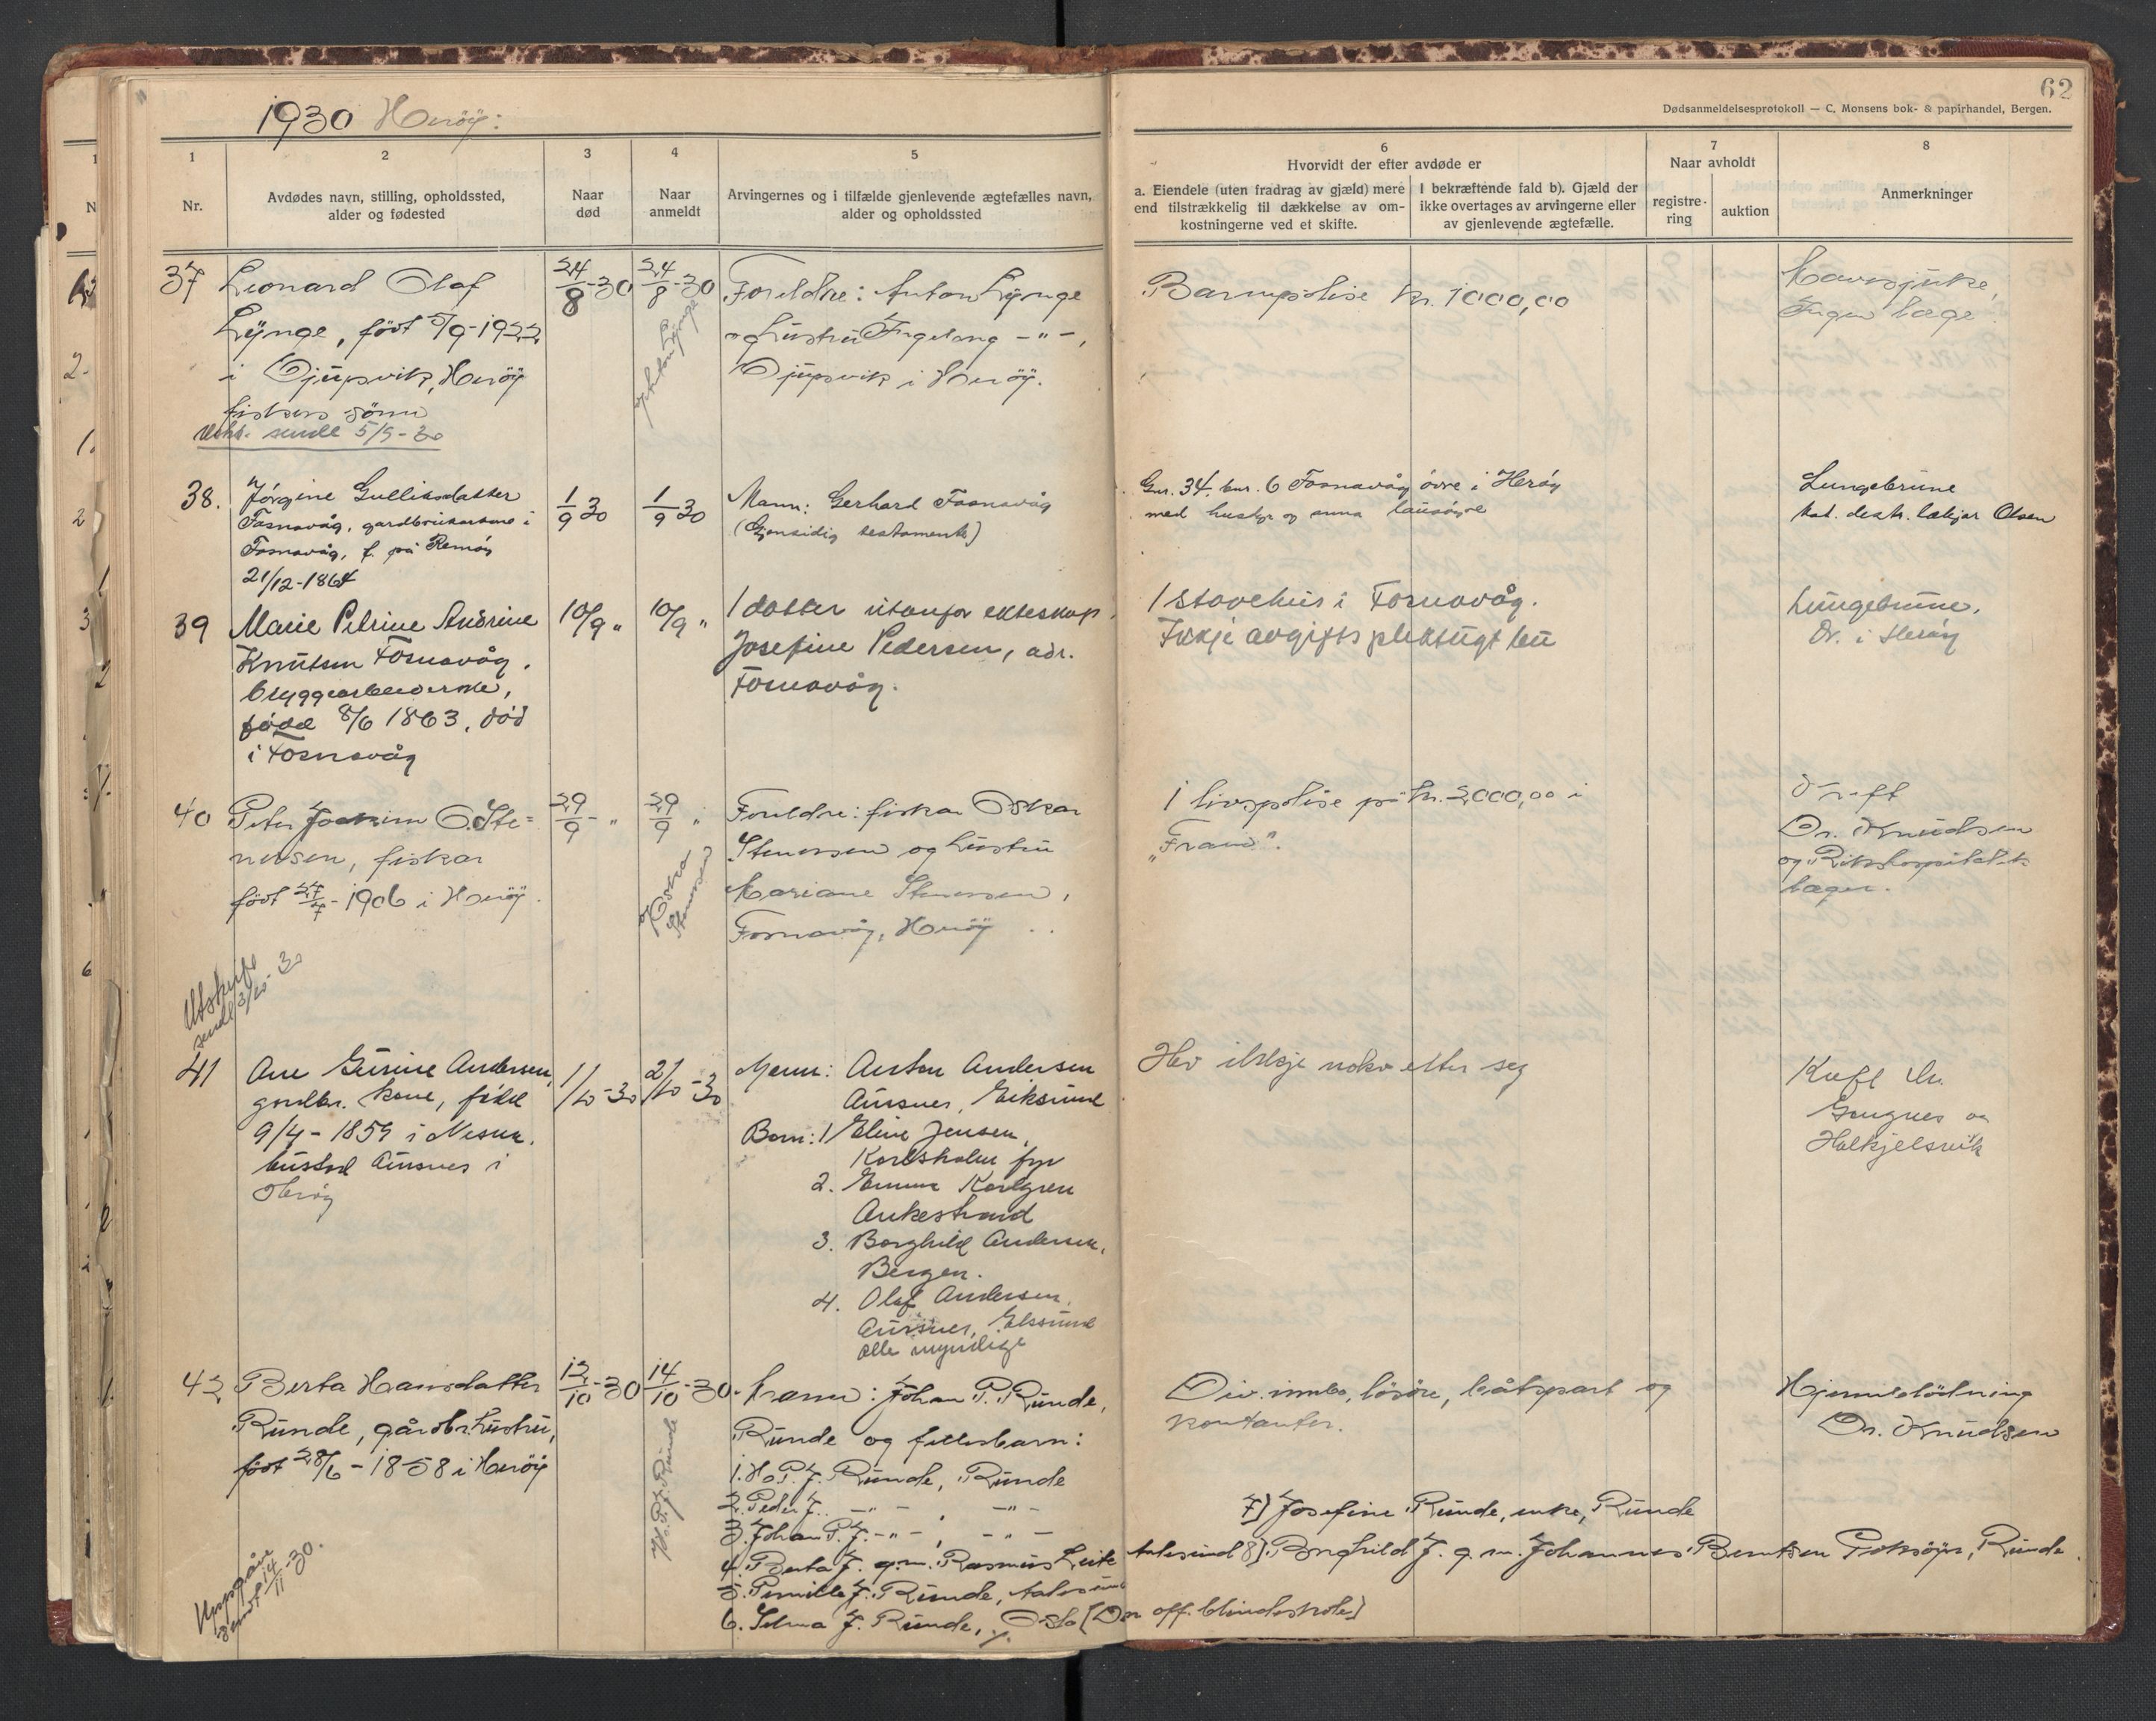 1930 Herøy:
62
Dødsanmeldelsesprotokoll — C. Monsens bok- & papirhandel, Bergen.
1
Nr.
2
Avdødes navn, stilling, opholdssted,
alder og fødested
3
Naar
død
4
Naar
anmeldt
5
Arvingernes og i tilfælde gjenlevende ægtefælles navn,
alder og opholdssted
6
Hvorvidt der efter avdøde er
a. Eiendele (uten fradrag av gjæld) mere
end tilstrækkelig til dækkelse av om-
kostningerne ved et skifte.
I bekræftende fald b). Gjæld der
ikke overtages av arvingerne eller
av gjenlevende ægtefælle.
7
Naar avholdt
registre-
ring
auktion
8
Anmerkninger
37
Leonard Olaf
Lynge, født 5/9-1922
i Djupsvik, Herøy
fiskers sønn
sendt 5/9-30
24/8-30
24/8-30
Anton Lynge
Foreldre: Anton Lynge
og hustru Ingeborg -"-,
Djupsvik i Herøy.
Barnepolise kr. 1000,00
Ingen læge
38.
Jørgine Gulliksdatter
Fosnavåg, gardbrukarkone i
Fosnavåg, f. på Remøy
21/12-1864
1/9 30
1/9 30
Mann: Gerhard Fosnavåg
(Gjensidig testamente)
Gnr. 34, bnr. 6 Fosnavåg øvre i Herøy
med hustyr og anna lausøyre
Lungebrune
kst. distr. lækjar Olsen
39
Marie Petrine Andrine
Knutsen Fosnavåg,
bryggearbeiderske,
fødd 8/6 1863, død
i Fosnavåg
10/9 "
10/9 "
1 dotter utanfor ekteskap,
Josefine Pedersen, adr.
Fosnavåg.
1 stovehus i Fosnavåg.
Inkje avgiftspliktugt bu
Lungebrune.
Dr. i Herøy
40
Peter Joakim O. Ste-
nersen, fiskar
født 27/7-1906 i Herøy.
Utskrift
sendt 3/10-30
29/9 - "
29/9 "
Oskar
Stenersen
Foreldre: fiskar Oskar
Stenersen og hustru
Mariane Stenersen,
Fosnavåg, Herøy
1 livspolise på kr. 2000,00 i
"Fram".
Kreft
Dr. Knudsen
og Rikshospitalets
læger.
41
Ane Gurine Andersen,
gardbr. kone, fødd
9/4-1859 i Nesna.
bustad Aursnes i
Herøy
1/10-30
2/10-30
Mann: Anton Andersen
Aursnes, Eiksund
Born: 1 Eline Jensen,
Kvelsholm fyr
2. Emma Karlgren
Ankestrand
3. Borghild Andersen,
Bergen.
4. Olaf Andersen,
Aursnes, Eiksund
alle myndige
Hev ikkje noko etter seg
Kreft Dr.
Gangnes og
Holkjelsvik
42
Berta Hansdatter
Runde, gårdbr. hustru,
født 28/6-1858 i Herøy
Uppgåve
sendt 14/11-30.
12/10-30
14/10-30.
H. P. J. Runde
Mann: Johan P. Runde,
Runde og fellesbarn:
1. H. P. J. Runde, Runde
2. Peder J. -"- -"-
3. Johan P. J. -"-, -"-
4. Berta J. g. m. Rasmus Leite Aalesund
5. Pernille J. Runde, Aalesund
6. Selma J. Runde, Oslo [Den off. blindeskole]
7] Josefine Runde, enke, Runde
8] Borghild J. g. m. Johannes Berntsen Goksøyr, Runde.
Div. innbo, løsøre, båtspart og
kontanter.
Hjerneblødning
Dr. Knudsen